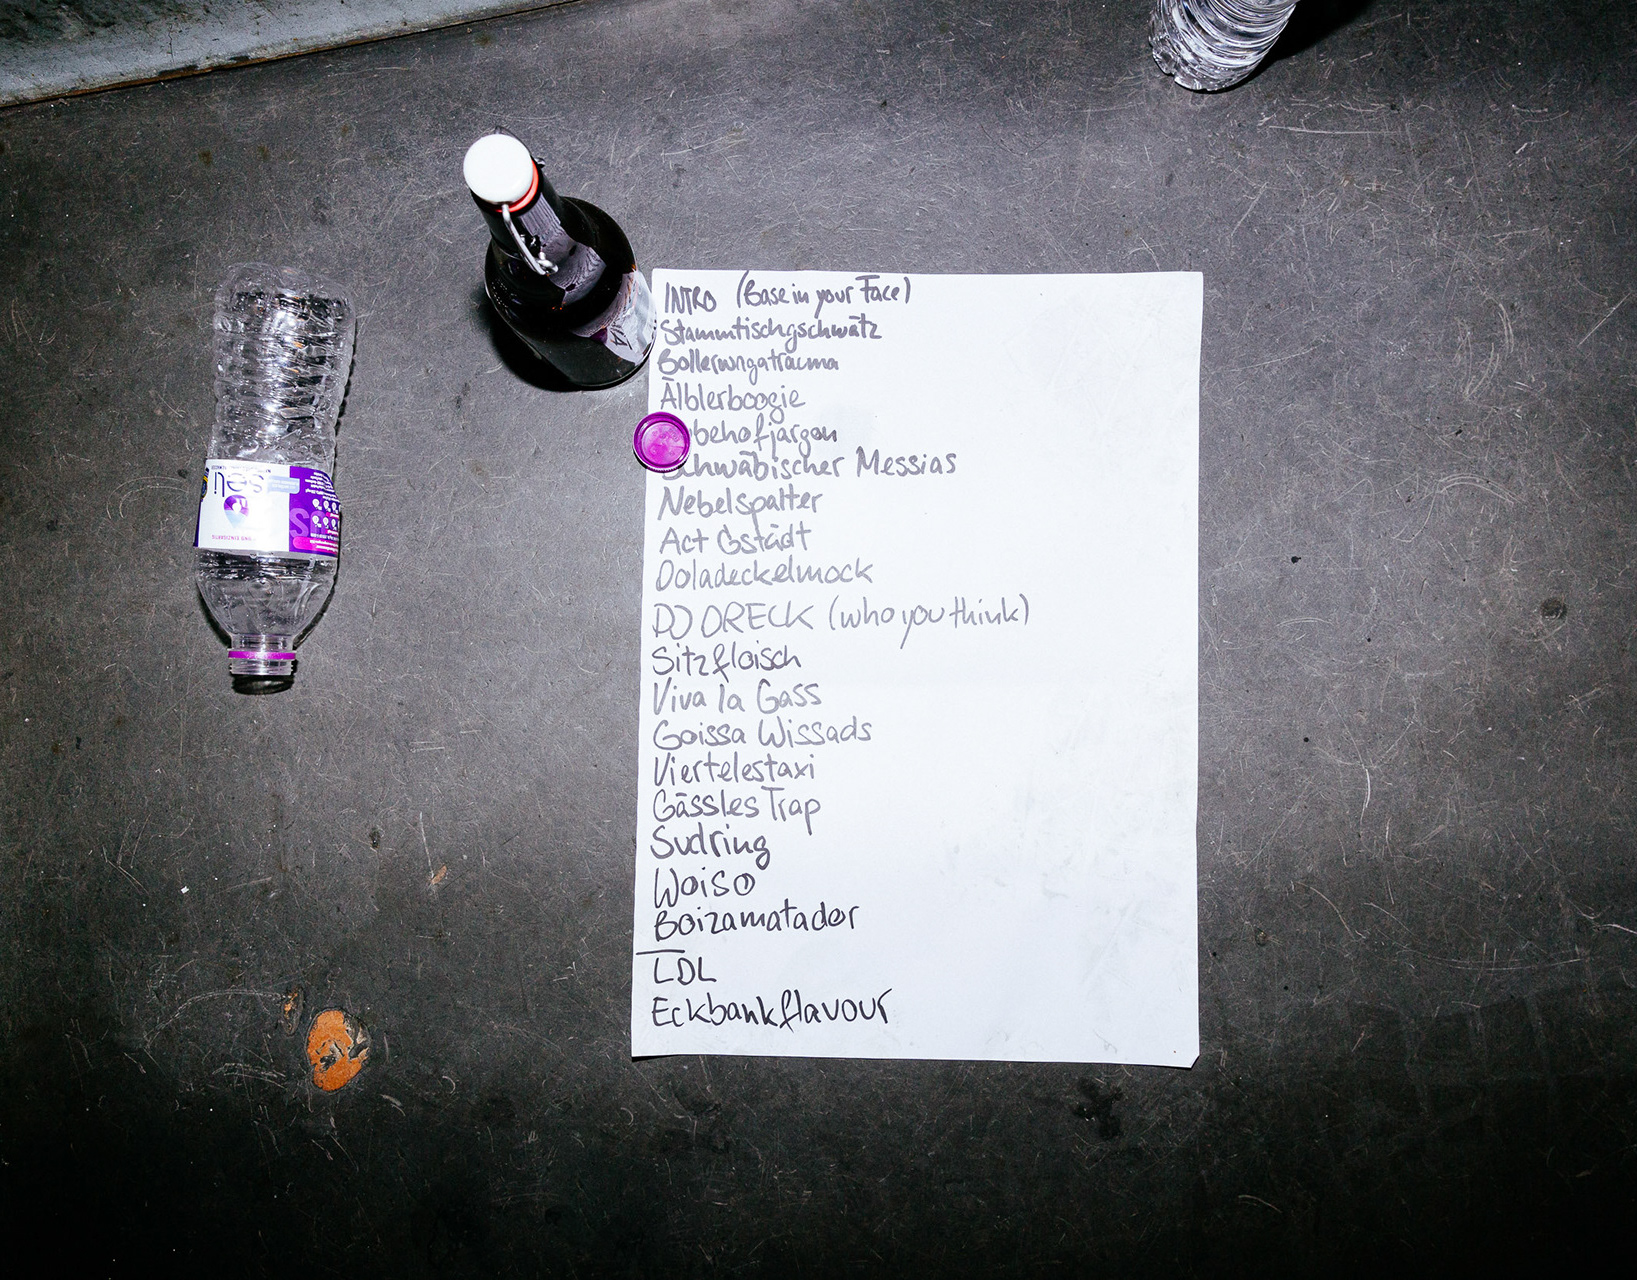 INTRO (Base in your Face)
Stammtischgschwätz
Bollerwagatrauma
Älblerboogie
behofjargon
chwäbischer Messias
Nebelspalter
Act Gstädt
Doladeckelmock
DJ DRECK (who you think)
Sitzfloisch
Viva la Gass
Goissa Wissads
Viertelestaxi
Gässles Trap
Südring
Woiso
Boizamatador
LDL
Eckbankflavour